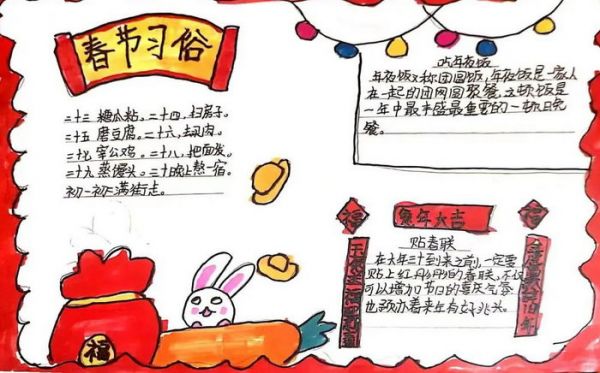 春节习俗
二十三 糖瓜粘。二十四，扫房子。
二十五 磨豆腐。二十六，去买肉。
二十七 宰公鸡。二十八，把面发。
二十九 蒸馒头。三十晚上熬一宿。
初一初二满街走。
吃年夜饭
年夜饭又称团圆饭，年夜饭是一家人
在一起的团圆聚餐，这顿饭是
一年中最丰盛最重要的一顿晚
餐。
福
兔年大吉
福
贴春联
在大年三十到来之前，一定要
贴上红彤彤的春联，不仅
可以增加节日的喜庆气氛
也预示着来年有好兆头。
福